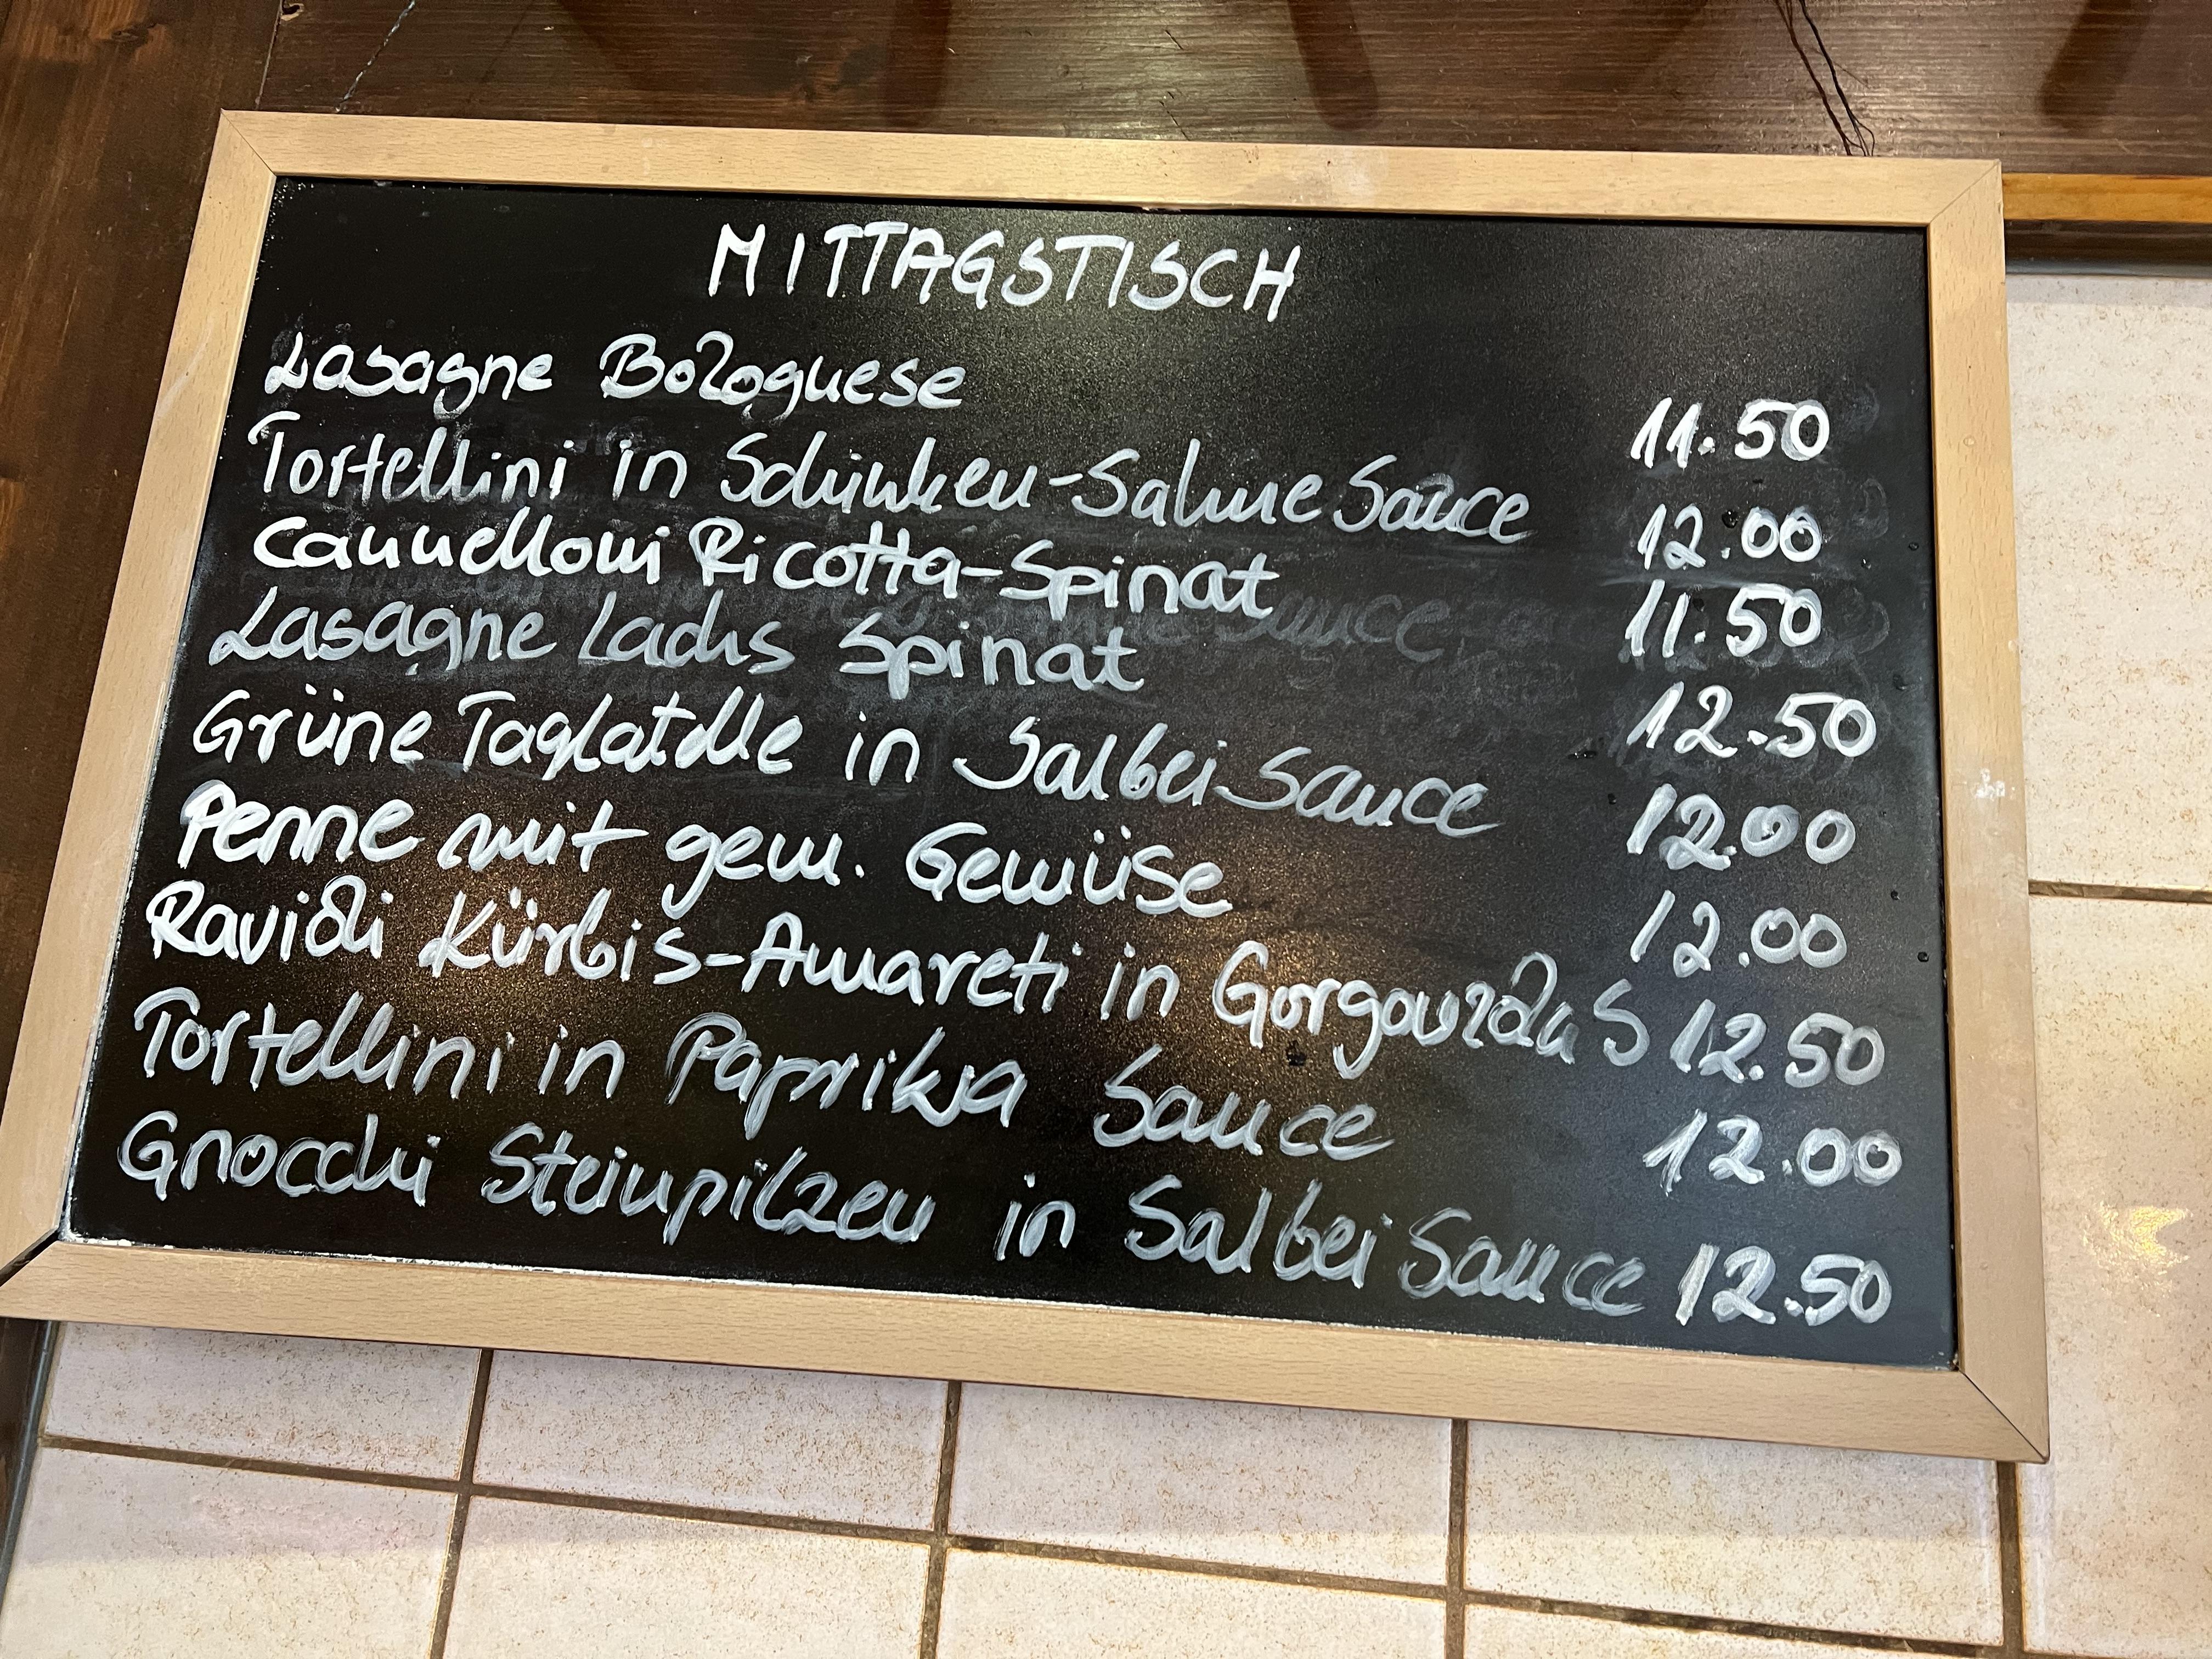 MITTAGSTISCH
Lasagne Bolognese 11.50
Tortellini in Schinken-Sahne Sauce 12.00
Cannelloni Ricotta-Spinat 11.50
Lasagne Lachs Spinat 12.50
Grüne Taglatelle in Salbei Sauce 12.00
Penne mit gem. Gemüse 12.00
Ravioli Kürbis-Amareti in Gorgonzola S 12.50
Tortellini in Paprika Sauce 12.00
Gnocchi Steinpilzen in Salbei Sauce 12.50